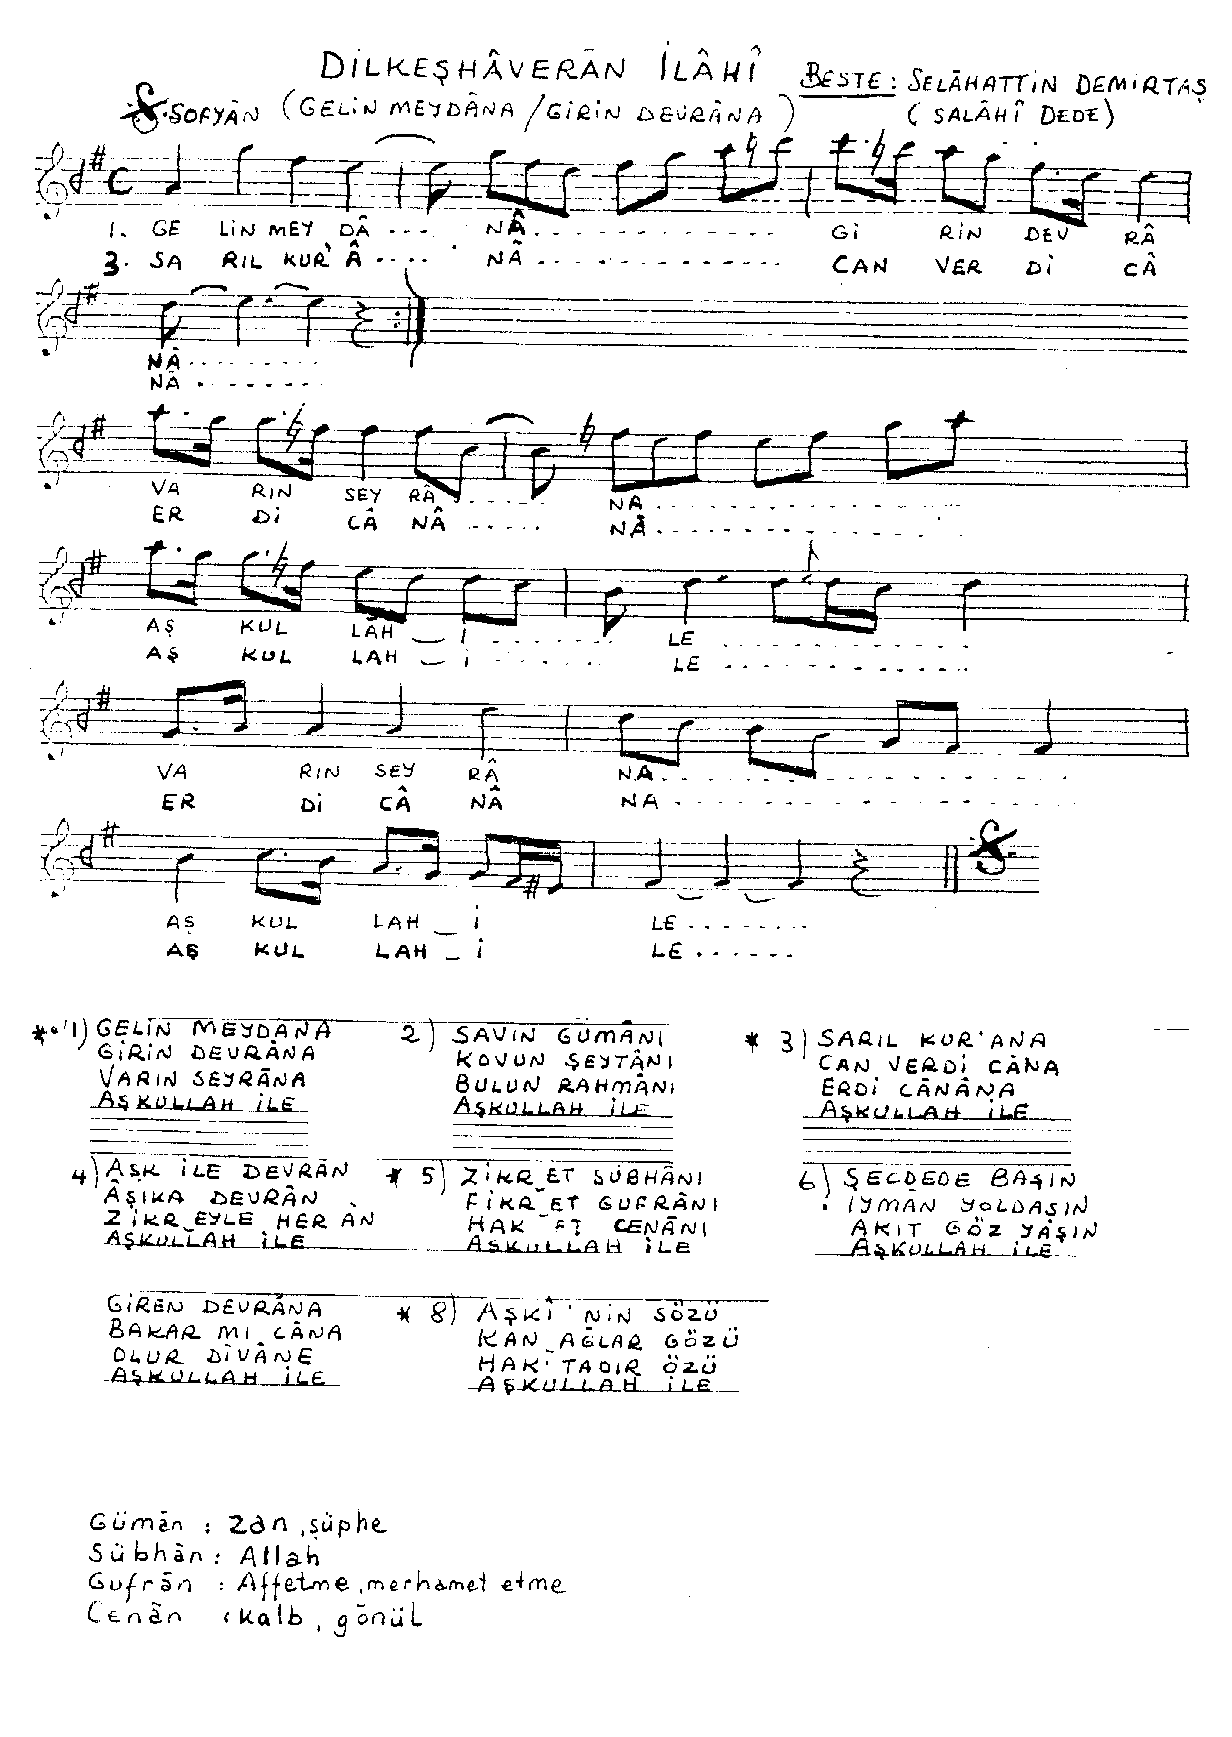 DİLKEŞHÂVERÂN İLÂHÎ
BESTE: SELÂHATTİN DEMİRTAŞ
SOFYÂN (GELİN MEYDÂNA / GİRİN DEVRÂNA)
(SALÂHÎ DEDE)
1. GE LİN MEY DÂ .... NÂ .............. Gİ RİN DEV RÂ
3. SA RIL KUR' Â .... NÂ .............. CAN VER Dİ CÂ
NÂ ........
NÂ .......
VA RIN SEY RÂ ..... NA ................
ER Dİ CÂ NÂ ..... NÂ ................
AŞ KUL LÂH _ İ ........ LE .............
AŞ KUL LAH _ İ ....... LE .............
VA RIN SEY RÂ NA ......................
ER Dİ CÂ NÂ NA ......................
AŞ KUL LAH _ İ LE ........
AŞ KUL LAH _ İ LE ......
* 1) GELİN MEYDÂNA
GİRİN DEVRÂNA
VARIN SEYRÂNA
AŞKULLAH İLE
2) SAVIN GÜMÂNI
KOVUN ŞEYTÂNI
BULUN RAHMÂNI
AŞKULLAH İLE
* 3) SARIL KUR'ANA
CAN VERDİ CÂNA
ERDİ CÂNÂNA
AŞKULLAH İLE
4) AŞK İLE DEVRÂN
ÂŞIKA DEVRÂN
ZİKR_EYLE HER ÂN
AŞKULLAH İLE
* 5) ZİKR_ET SÜBHÂNI
FİKR_ET GUFRÂNI
HAK CENÂNI
AŞKULLAH İLE
6) SECDEDE BAŞIN
İYMÂN YOLDAŞIN
AKIT GÖZ YAŞIN
AŞKULLAH İLE
GİREN DEVRÂNA
BAKAR MI CÂNA
OLUR DİVÂNE
AŞKULLAH İLE
* 8) AŞKÎ'NİN SÖZÜ
KAN_AĞLAR GÖZÜ
HAK'TADIR ÖZÜ
AŞKULLAH İLE
Gümân : Zan, şüphe
Sübhân : Allah
Gufrân : Affetme, merhamet etme
Cenân : Kalb, gönül